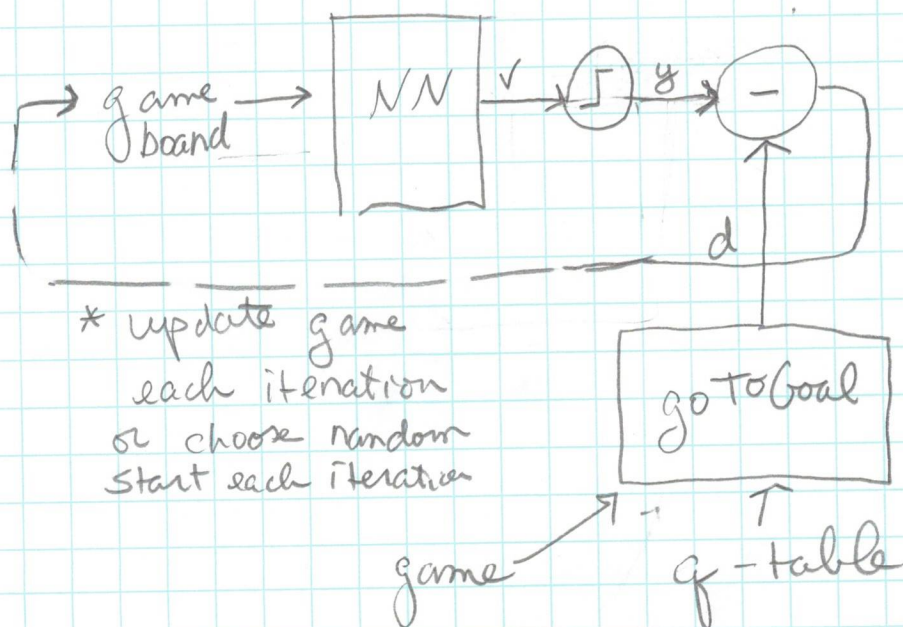 game
board
NN
v
y
-
d
* update game
each iteration
or choose random
start each iteration
goToGoal
game
q-table